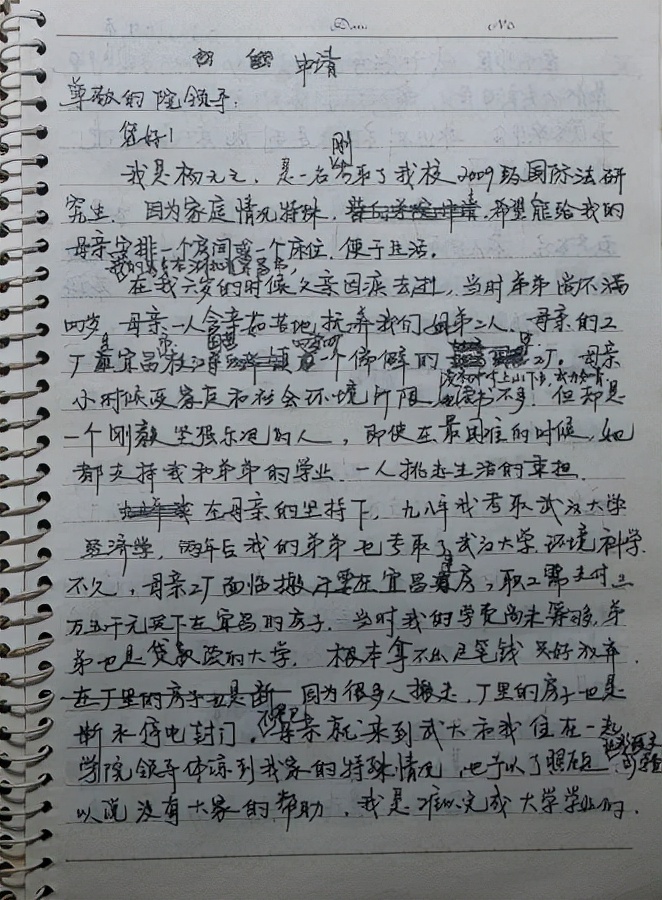 申请
尊敬的院领导：
您好！
刚
我是杨元元，是一名考取了我校2009级国际法研
究生。因为家庭情况特殊，希望能给我的
母亲安排一个房间或一个床位，便于生活。
在我六岁的时候父亲因病去逝，当时弟弟尚不满
四岁，母亲一人含辛茹苦地抚养我们姐弟二人。母亲的工
厂是宜昌市一个偏僻的工厂。母亲
小时候受家庭和社会环境所限，读书不多！但却是
一个刚毅坚强乐观的人，即使在最困难的时候，她
都支持我和弟弟的学业，一人挑起生活的重担。
在母亲的坚持下，九八年我考取武汉大学
经济学，两年后我的弟弟也考取了武汉大学环境科学。
不久，母亲工厂面临搬迁要在宜昌买房，职工需支付
万五千元买下在宜昌的房子。当时我的学费尚未筹够，弟
弟也是贷款读的大学，根本拿不出这笔钱只好放弃。
在厂里的房子也是断 因为很多人搬走，厂里的房子也是
断水停电封门，不得已母亲就来到武大和我住在一起
学院领导体谅到我家的特殊情况，也予以了照顾，可
以说没有大家的帮助，我是难以完成大学学业的。